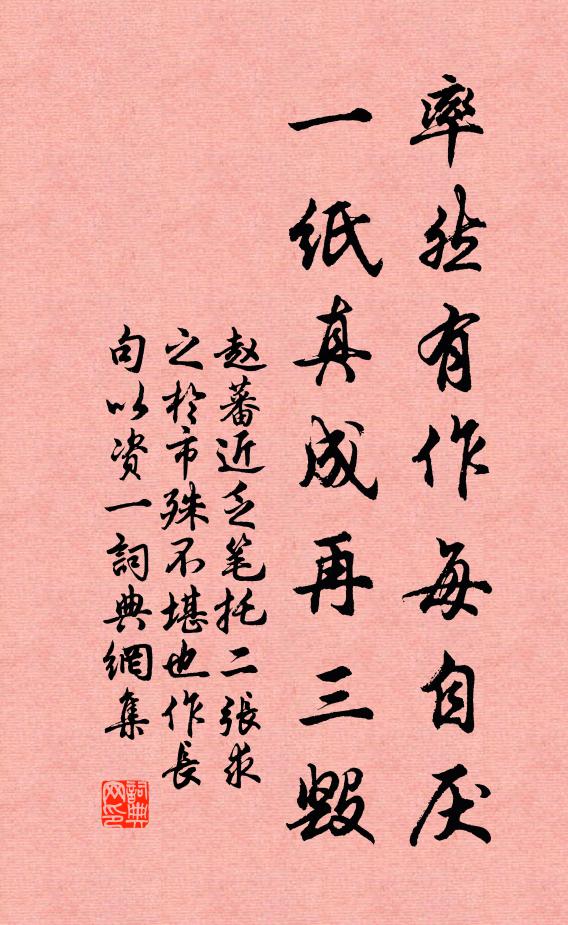 率然有作每自厌
一紙真成再三毁
赵蕃近乏笔托二張求
之於市殊不堪也作長
句以资一詞典網集
詞典网印